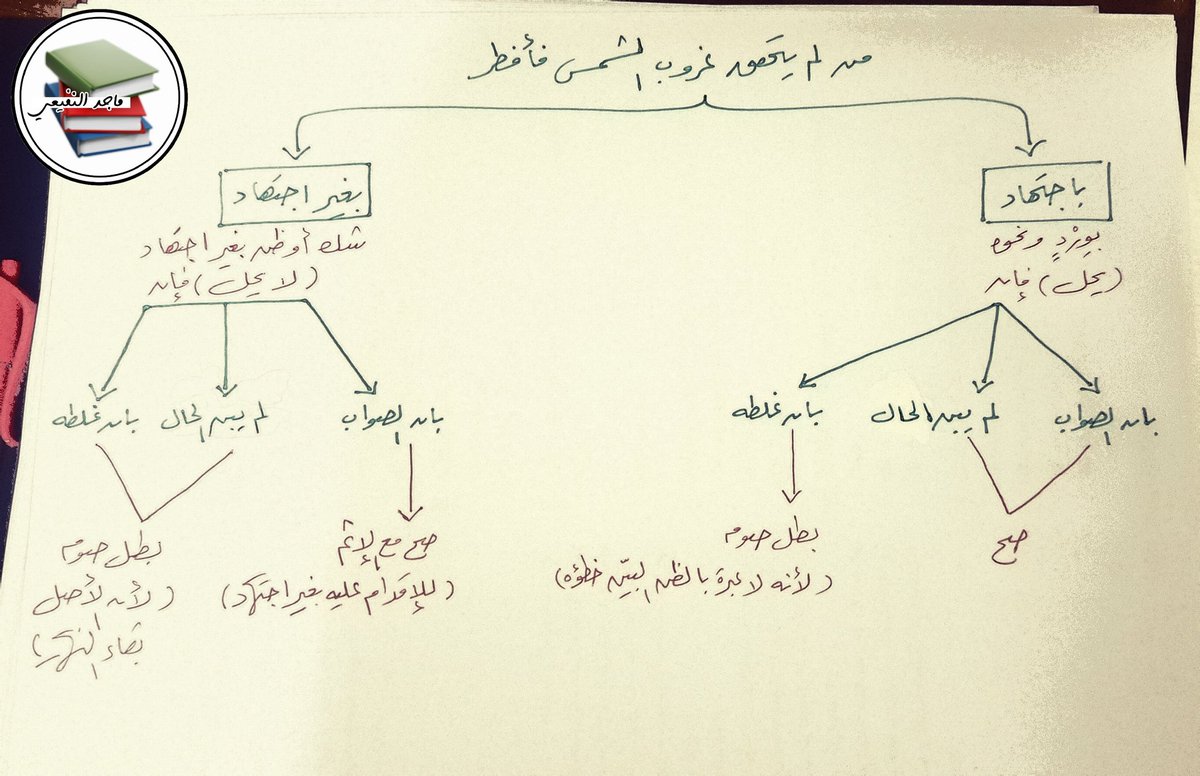 ماجد النفيعي
من لم يتحقق غروب الشمس فأفطر
باجتهاد
بورد ونحوه
(يحل) فإن
بان الصواب
لم يبن الحال
بان غلطه
صح
بطل صومه
(لأنه لا عبرة بالظن البيّن خطؤه)
بغير اجتهاد
شك أو ظن بغير اجتهاد
(لا يحل) فإن
بان الصواب
لم يبن الحال
بان غلطه
صح مع الإثم
(للإقدام عليه بغير اجتهاد)
بطل صومه
(لأن الأصل
بقاء النهار)